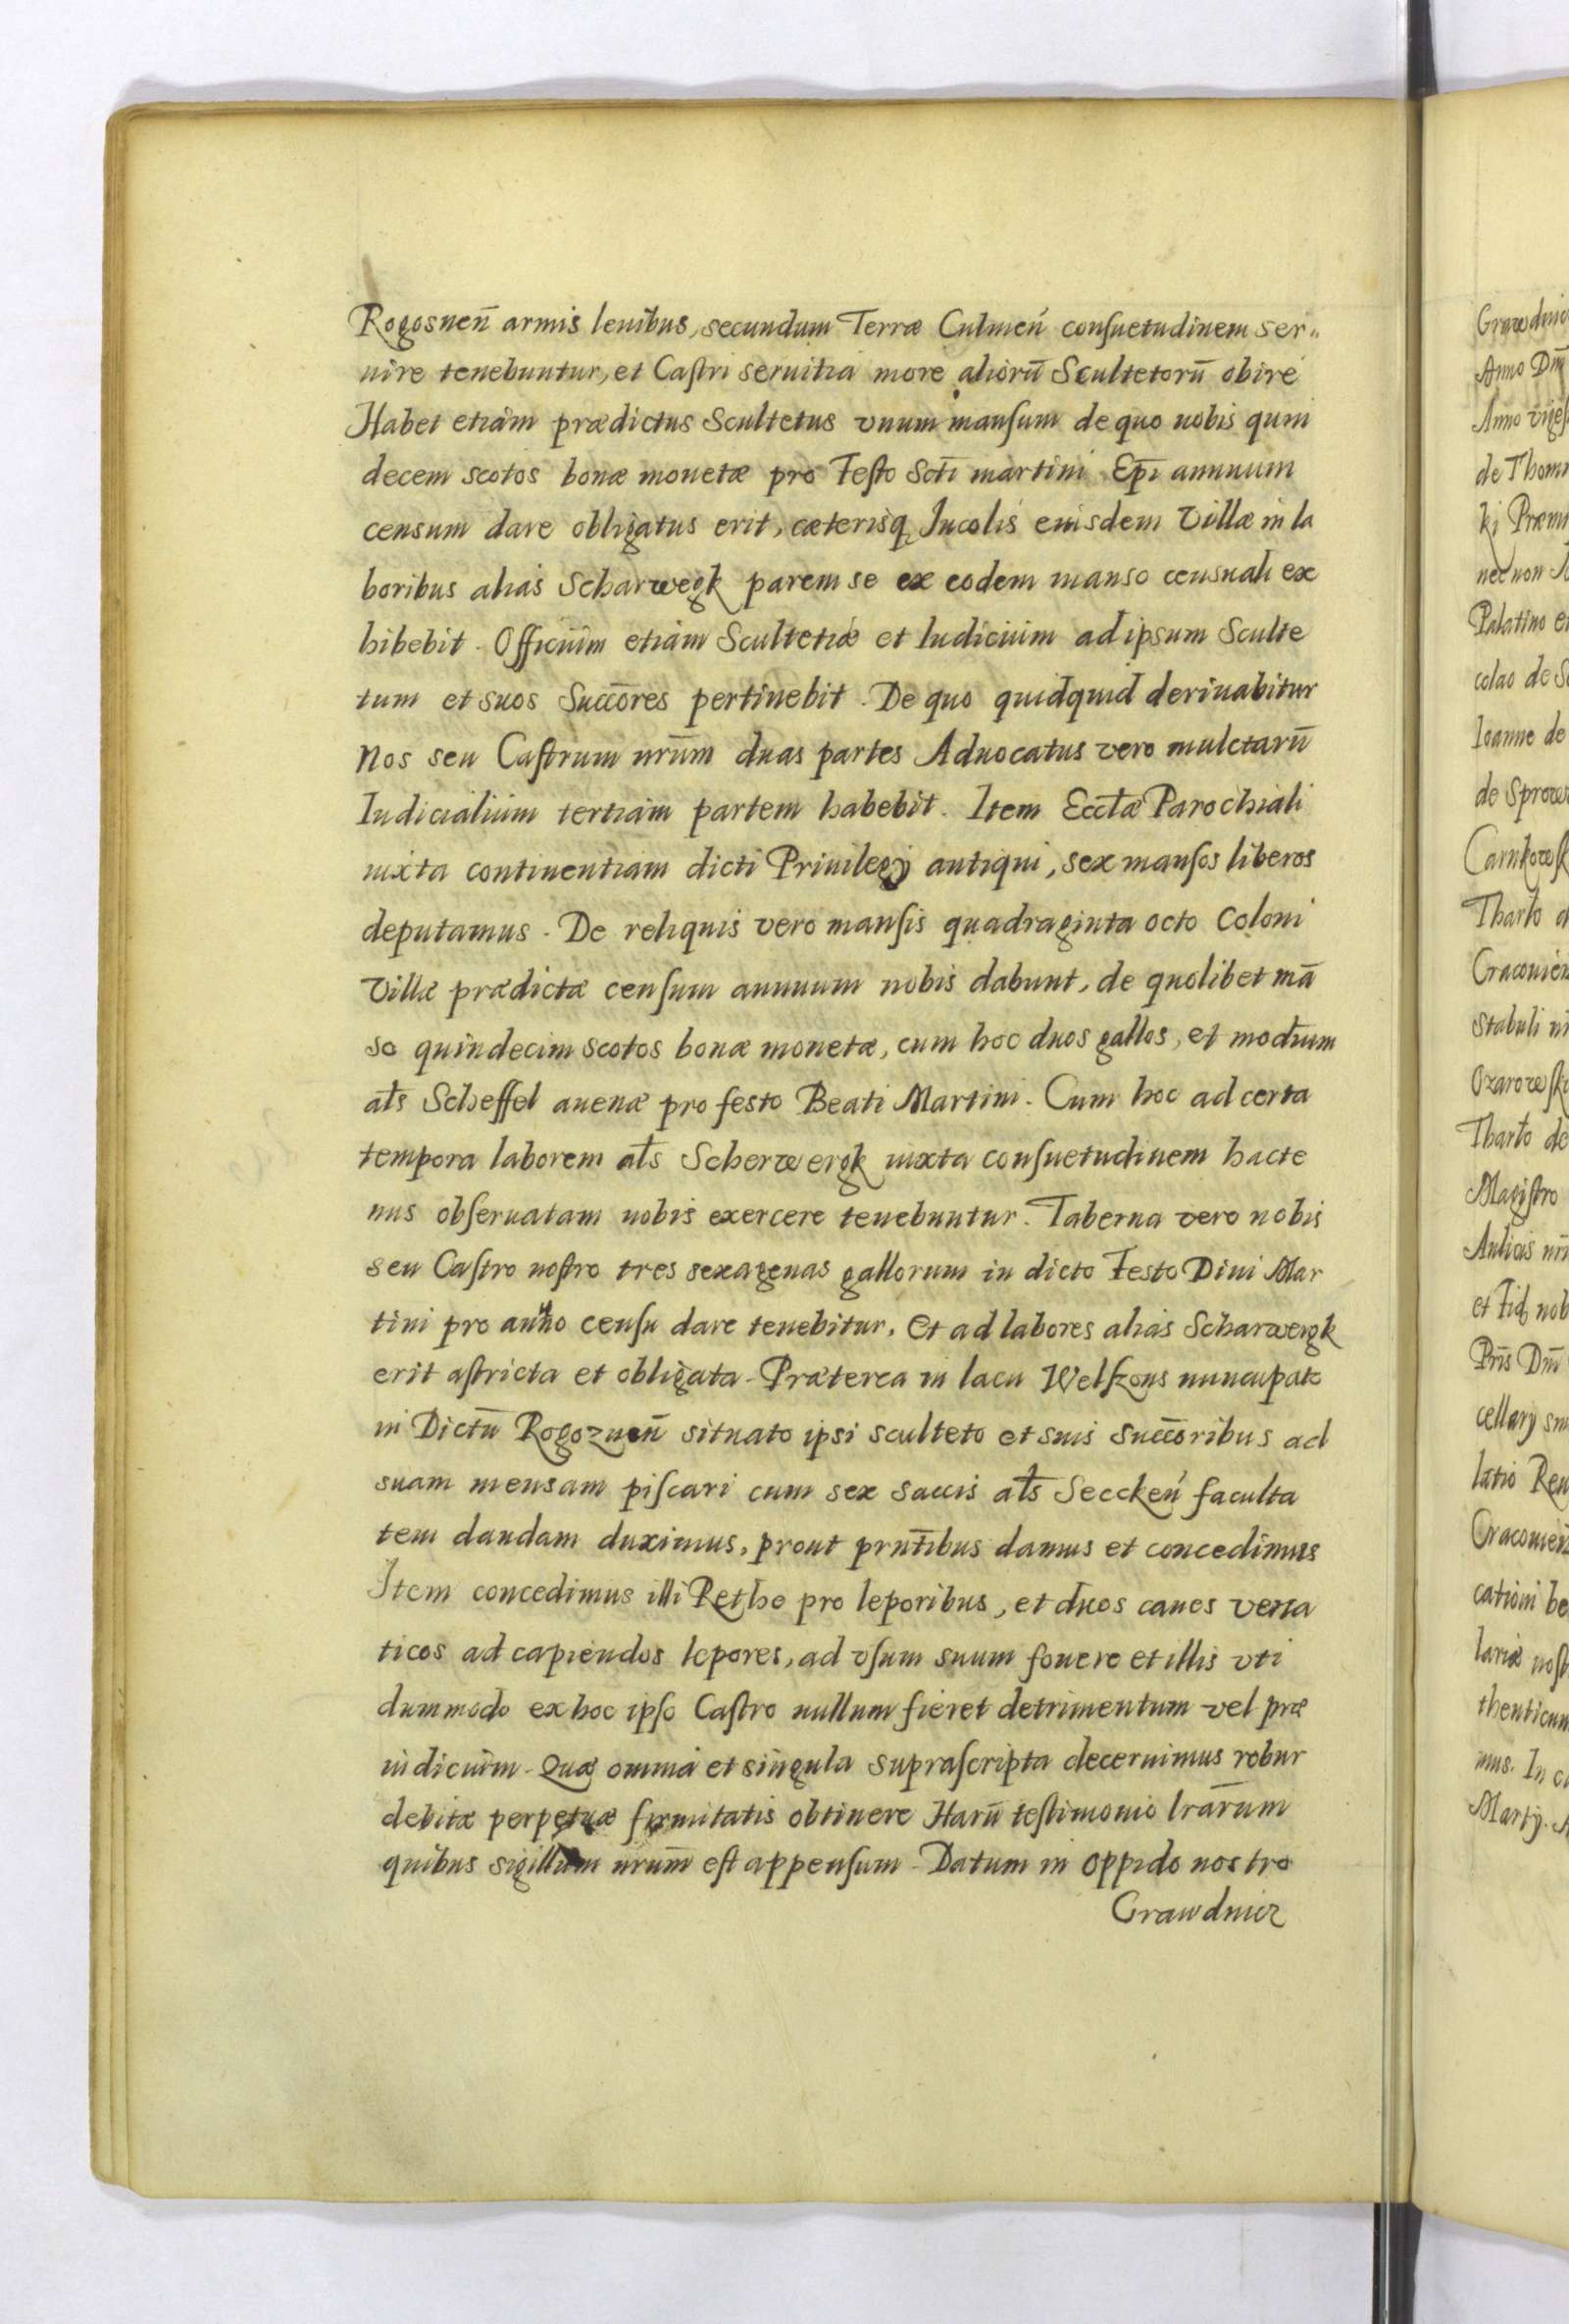 Rogosnen̄ armis leuibus, secundum Terræ Culmeń consuetudinem ser„
uire tenebuntur, et Castri seruitia more aliorū Scultetorū obire
Habet etiam prædictus Scultetus vnum mansum de quo nobis quin
decem scotos bonæ monetæ pro Festo Sctī martini Ep̄i annuum
censum dare obligatus erit, cæterisq Incolis eiusdem Villæ in la
boribus alias Scharwegk parem se ex eodem manso censuali ex
hibebit. Officium etiam Scultetiæ et Iudicium ad ipsum Sculte
tum et suos Succōres pertinebit. De quo quidquid deriuabitur
nos seu Castrum nrūm duas partes Aduocatus vero mulctarū
Iudicialium tertiam partem habebit. Item Ecctæ Parochiali
iuxta continentiam dicti Priuilegij antiqui, sex mansos liberos
deputamus. De reliquis vero mansis quadraginta octo Coloni
Villæ prædictæ censum annuum nobis dabunt, de quolibet mā
so quindecim scotos bonæ monetæ, cum hoc duos gallos, et modium
ałs Scheffel auenæ pro festo Beati Martini. Cum hoc ad certa
tempora laborem ałs Scherwergk iuxta consuetudinem hacte
nus obseruatam nobis exercere tenebuntur. Taberna vero nobis
seu Castro nostro tres sexagenas gallorum in dicto Festo Diui Mar
tini pro annuo censu dare tenebitur, Et ad labores alias Scharwergk
erit astricta et obligata. Præterea in lacu Welszons nuncupato
in Dictū Rogoznen̄ situato ipsi sculteto et suis Succōribus ad
suam mensam piscari cum sex saccis ałs Secckeń faculta
tem dandam duximus, prout prn̄tibus damus et concedimus
Item concedimus illi Rethe pro leporibus, et duos canes vena
ticos ad capiendos lepores, ad vsum suum fouere et illis vti
dummodo ex hoc ipso Castro nullum fieret detrimentum vel præ
iudicium. Quæ omnia et singula suprascripta decernimus robur
debitæ perpetuæ firmitatis obtinere Harū testimonio lrārum
quibus sigillum nrum̄ est appensum. Datum in oppido nostro
Grawdnicz
Grawdnic
Anno Dn̄i
Anno viges
de Thom
ki Præm
nec non
Palatino et
colao de
Ioanne de
de Sprow
Carnkowsk
Tharło
Cracouien
stabuli
Ozarowsk
Tharło de
Magistro
Aulicis
et Fid nob
Pn̄s Dn̄i
cellary
latio Reu
Cracouien̄
cationi be
lariæ nost
thenticum
mus. In
Martÿ.